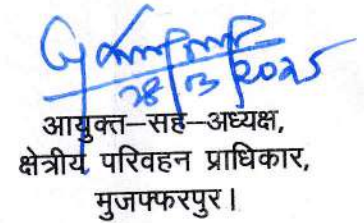 28/3/2025
आयुक्त-सह-अध्यक्ष,
क्षेत्रीय परिवहन प्राधिकार,
मुजफ्फरपुर।